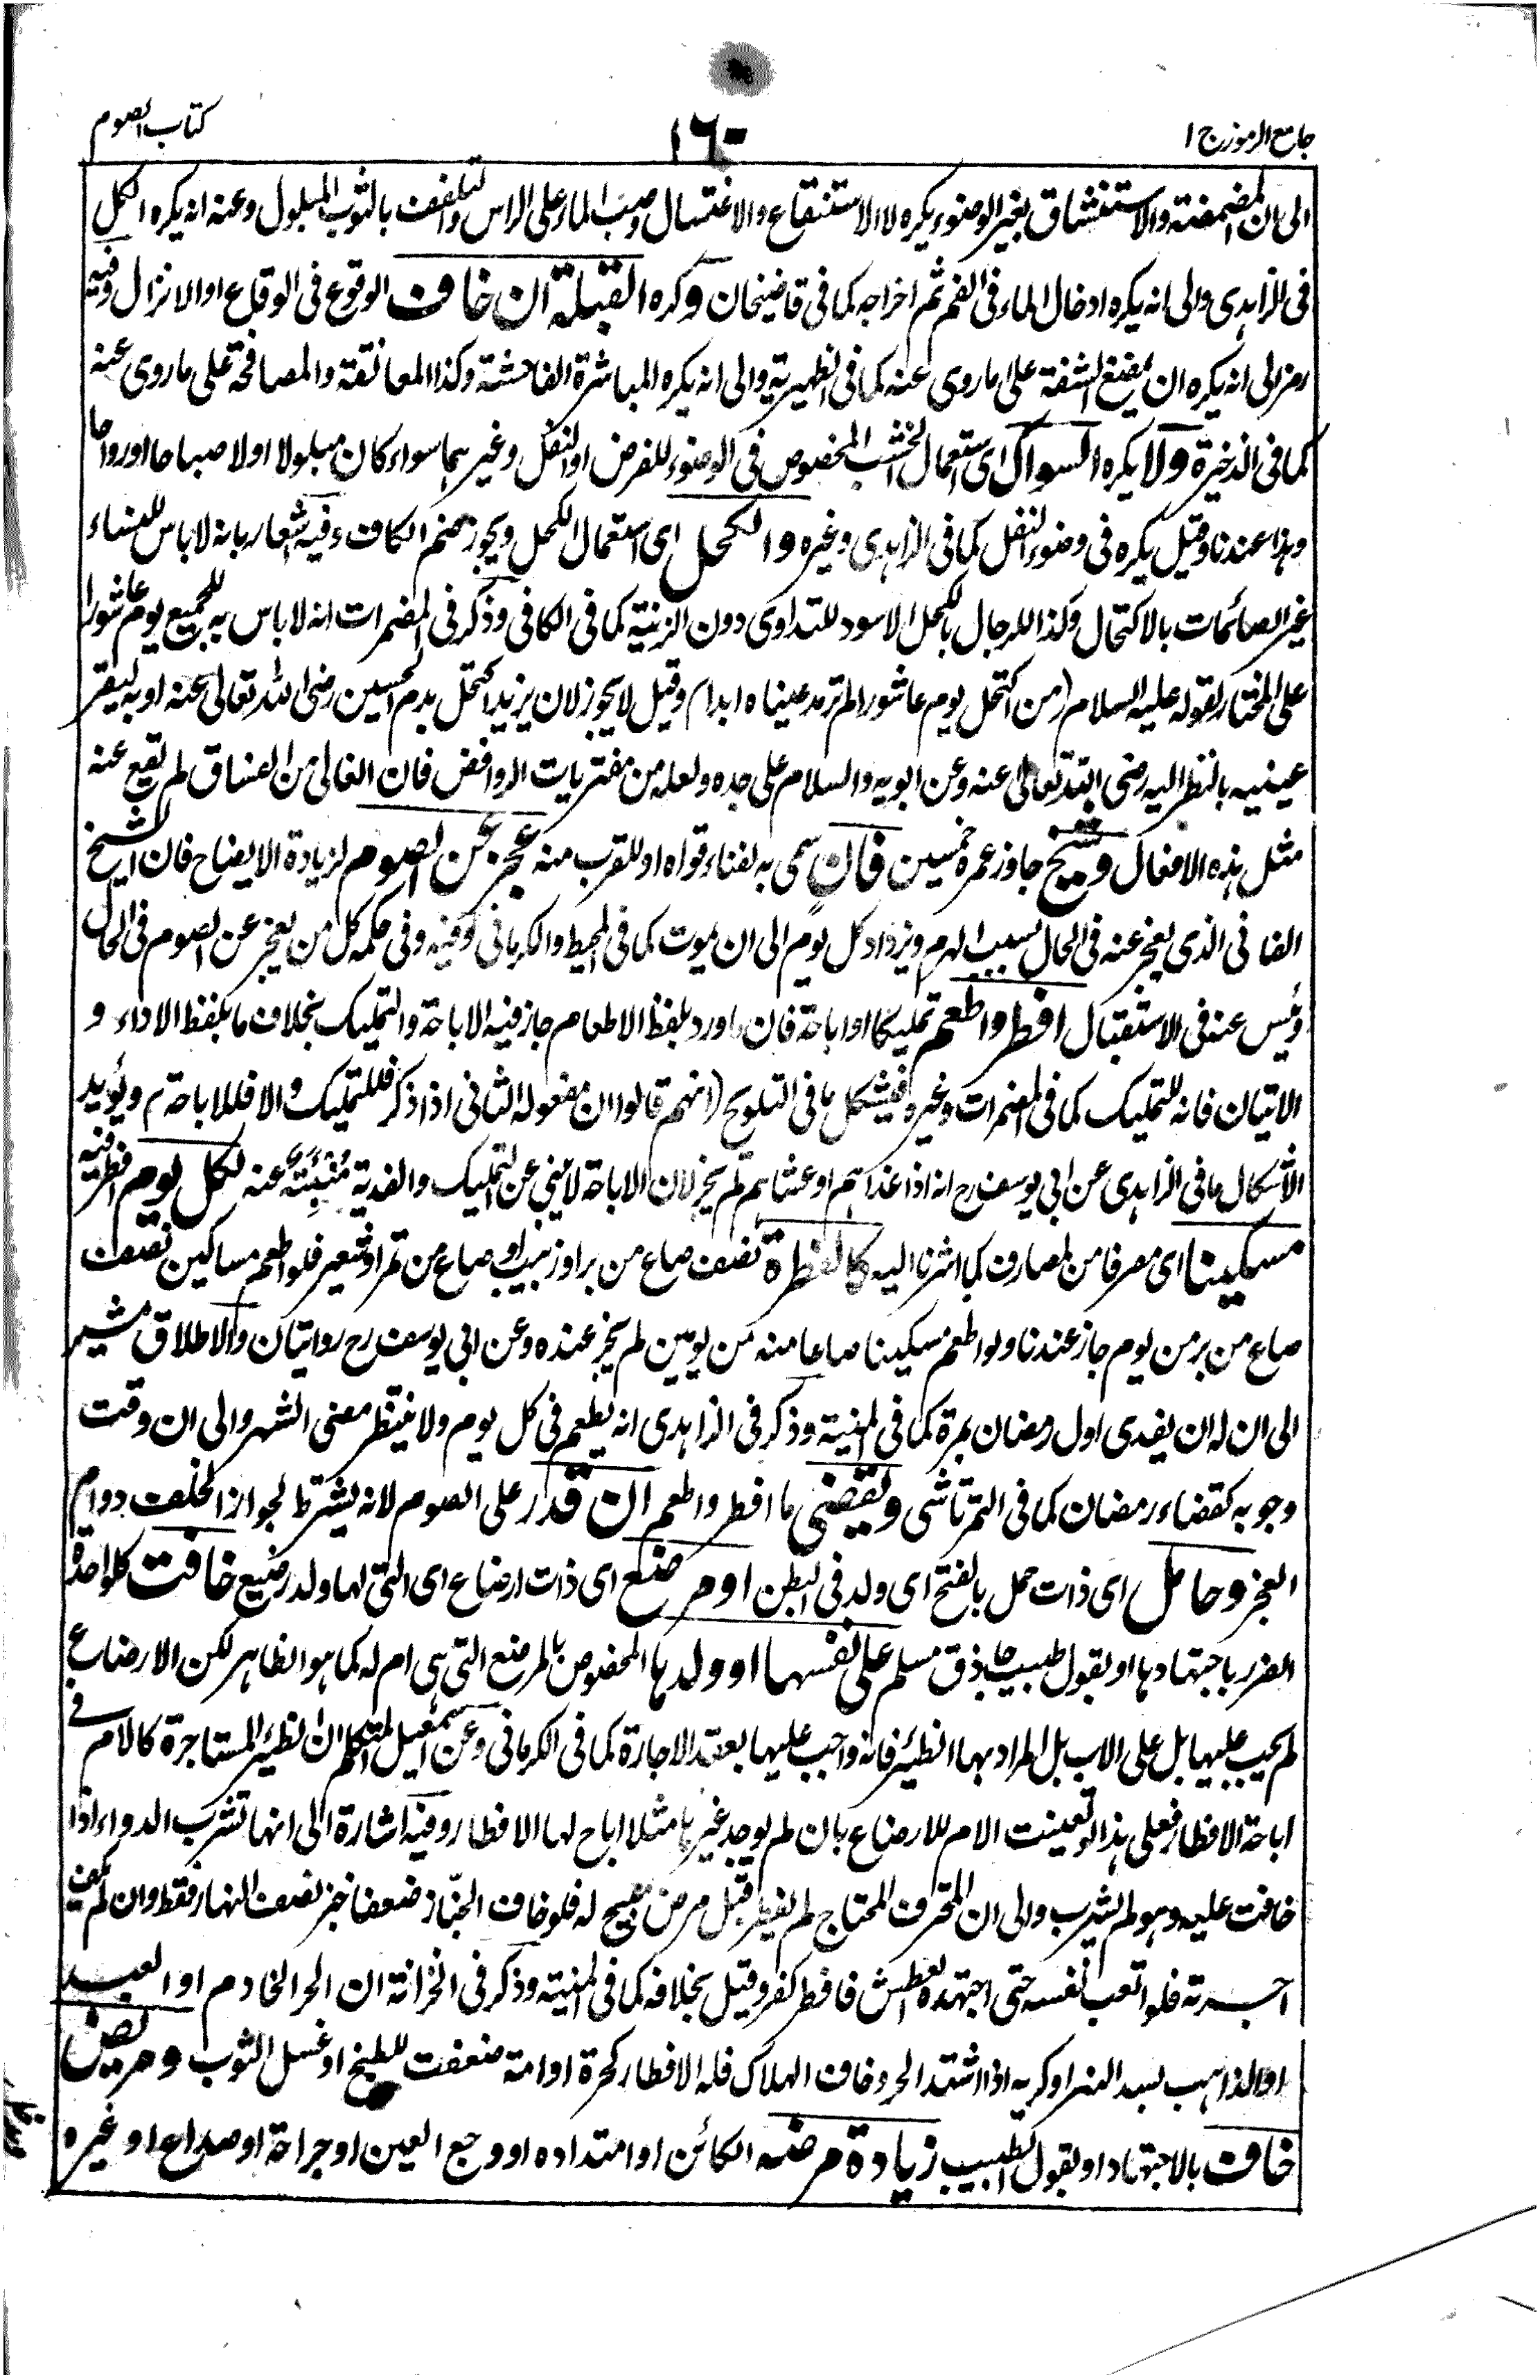 جامع الرموز ج ١
١٦٠
كتاب الصوم
الى ان المضمضة والاستنشاق بغير الوضوء يكره لا الاستنقاع والاغتسال وصب الماء على الراس والتلفف بالثوب المبلول وعنه انه يكره الكل
فى الزاهدى والى انه يكره ادخال الماء فى الفم ثم اخراجه كما فى قاضيخان وكره القبلة ان خاف الوقوع فى الوقاع او الانزال وفيه
رمز الى انه يكره ان يمضغ الشفة على ما روى عنه كما فى الظهيرية والى انه يكره المباشرة الفاحشة وكذا المعانقة والمصافحة على ما روى عنه
كما فى الذخيرة ولا يكره السواك اى استعمال الخشب المخصوص فى الوضوء للفرض او النفل وغيرهما سواء كان مبلولا او لا صباحا او رواحا
وهذا عندنا وقيل يكره فى وضوء النفل كما فى الزاهدى وغيره والكحل اى استعمال الكحل ويجوز ضم الكاف وفيه اشعار بانه لا باس للنساء
غير الصائمات بالاكتحال وكذا للرجال بالكحل الاسود للتداوى دون الزينة كما فى الكافى وذكر فى المضمرات انه لا باس به للجميع يوم عاشورا
على المختار لقوله عليه السلام (من اكتحل يوم عاشورا لم ترمد عيناه ابدا) وقيل لا يجوز لان يزيد اكتحل بدم الحسين رضى الله تعالى عنه او به ليقر
عينيه بالنظر اليه رضى الله تعالى عنه وعن ابويه والسلام على جده ولعله من مفتريات الروافض فان الغالى من الفساق لم تقع عنه
مثل هذه الافعال وشيخ جاوز عمره خمسين فان سمى به لفناء قواه او للقرب منه عجز عن الصوم لزيادة الايضاح فان الشيخ
الفانى الذى يعجز عنه فى الحال بسبب الهرم ويزداد كل يوم الى ان يموت كما فى المحيط والكرمانى وفيه وفى حكمه كل من يعجز عن الصوم فى الحال
ويئس عنه فى الاستقبال افطر واطعم تمليكا او اباحة فان ما ورد بلفظ الاطعام جاز فيه الاباحة والتمليك بخلاف ما بلفظ الاداء و
الايتان فانه للتمليك كما فى المضمرات وغيره فيشكل ما فى التلويح (انهم قالوا ان مفعوله الثانى اذا ذكر فللتمليك والا فللاباحة) ويؤيد
الاشكال ما فى الزاهدى عن ابى يوسف رح انه اذا غداهم او عشاهم لم يجز لان الاباحة لا تنبئ عن التمليك والفدية منبئة عنه لكل يوم افطر فيه
مسكينا اى مصرفا من المصارف كما اشرنا اليه كالفطرة نصف صاع من بر او زبيب او صاع من تمر او شعير فلو اطعم مساكين نصف
صاع من بر من يوم جاز عندنا ولو اطعم مسكينا صاعا منه من يومين لم يجز عنده وعن ابى يوسف رح روايتان والاطلاق مشير
الى ان له ان يفدى اول رمضان بمرة كما فى المنية وذكر فى الزاهدى انه يطعم فى كل يوم ولا ينتظر مضى الشهر والى ان وقت
وجوبه كقضاء رمضان كما فى التمرتاشى ويقضى ما افطر واطعم ان قدر على الصوم لانه يشترط لجواز الخلف دوام
العجز وحامل اى ذات حمل بالفتح اى ولد فى البطن او مرضع اى ذات ارضاع اى التى لها ولد رضيع خافت كل واحدة
الضرر باجتهادها او بقول طبيب حاذق مسلم على نفسها او ولدها المخصوص بالمرضع التى هى ام له كما هو الظاهر لكن الارضاع
لم يجب عليها بل على الاب بل المراد بها الظئر فانه واجب عليها بعقد الاجارة كما فى الكرمانى وعن اسمعيل المتكلم ان الظئر المستاجرة كالام فى
اباحة الافطار فعلى هذا لو تعينت الام للارضاع بان لم يوجد غيرها مثلا اباح لها الافطار وفيه اشارة الى انها تشرب الدواء اذا
خافت عليه وهو لم يشرب والى ان المحترف المحتاج لم يفطر قبل مرض مبيح له فلو خاف الخباز ضعفا خبز نصف النهار فقط وان لم يكف
اجرته فلو اتعب نفسه حتى اجتهده العطش فافطر كفر وقيل بخلافه كما فى المنية وذكر فى الخزانة ان الحر الخادم او العبد
او الذاهب لسد النهر او كريه اذا اشتد الحر وخاف الهلاك فله الافطار كحرة او امة ضعفت للطبخ او غسل الثوب ومريض
خاف بالاجتهاد او بقول الطبيب زيادة مرضه الكائن او امتداده او وجع العين او جراحة او صداع او غيره